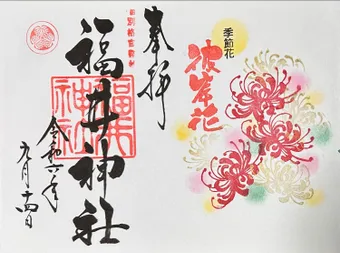 季節花
彼岸花
奉拝
旧別格官幣社
福井神社
福井
神社
令和六年
九月十四日